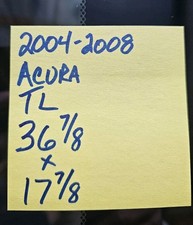 2004-2008
ACURA
TL
36 7/8
x
17 7/8